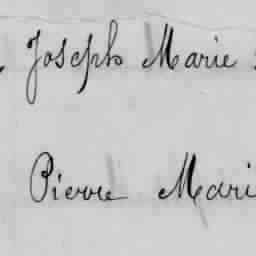 Joseph Marie
Pierre Mari